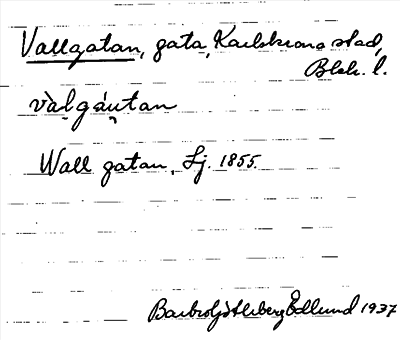 Vallgatan, gata, Karlskrona stad,
Blek. l.
vàlgáutan
Wall gatan, Lj. 1855.
Edlund 1937